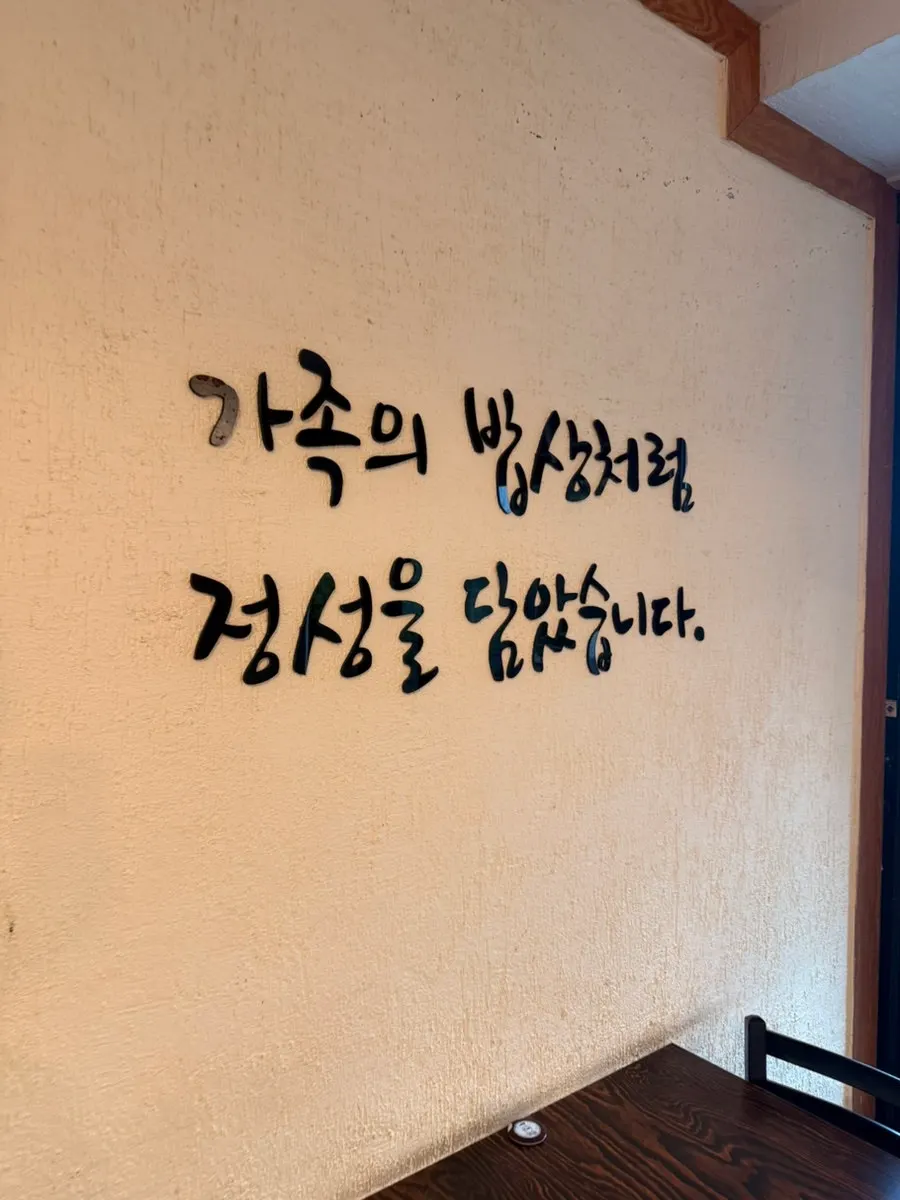 가족의 밥상처럼
정성을 담았습니다.